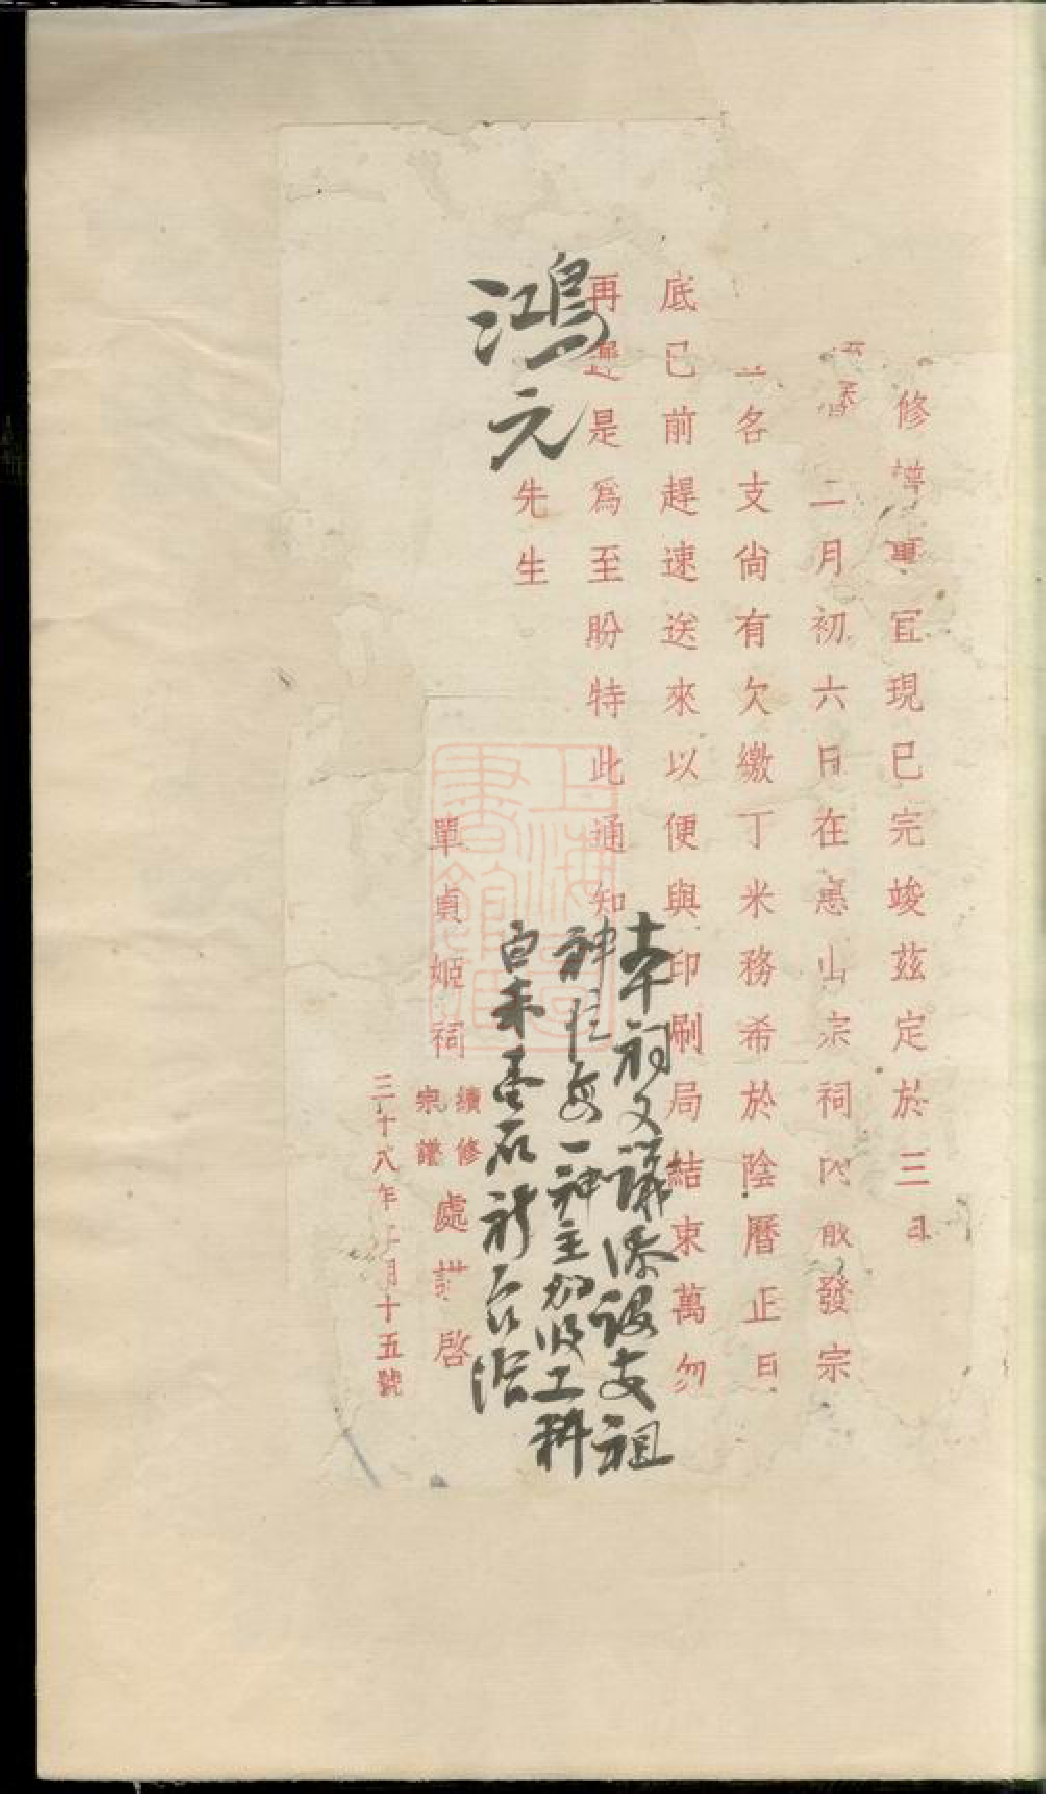 修譜事宜現已完竣茲定於三月
二月初六日在惠山宗祠內散發宗
各支尙有欠繳丁米務希於陰曆正月
底已前趕速送來以便與印刷局結束萬勿
再遲是爲至盼特此通知
鴻元先生
本祠又議添設支祖
神位每一神主加收工料
白米壹石
單貞姬祠
續修
宗譜
處謹啓
三十八年 月十五號
上海圖書館藏